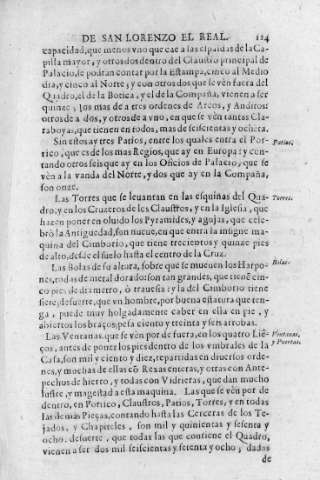 DE SAN LORENZO EL REAL. 124
capacidad, que menos vno que cae a las espaldas de la Ca-
pilla mayor, y otros dos dentro del Claustro principal de
Palacio, se podran contar por la Estampa, cinco al Medio
dia, y cinco al Norte, y con otros dos que se vèn fuera del
Quadro, el de la Botica, y el de la Compaña, vienen a ser
quinze, los mas de a tres ordenes de Arcos, y Anditos
otros de a dos, y otros de a vno, en que se vèn tantas Cla-
raboyas, que tienen en todos, mas de seiscientas y ochēta.
Sin estos ay tres Patios, entre los quales entra el Por-
Patios.
tico, que es de los mas Regios, que ay en Europa: y con-
tando otros seis que ay en los Oficios de Palacio, que se
vèn a la vanda del Norte, y dos que ay en la Compaña,
son onze.
Las Torres que se leuantan en las esquinas del Qua-
Torres.
dro, y en los Cruzeros de los Claustros, y en la Iglesia, que
hazen poner en oluido los Pyramides, y agujas, que cele-
brò la Antiguedad, son nueue, en que entra la insigne ma-
quina del Cimborio, que tiene trecientos y quinze pies
de alto, desde el suelo hasta el centro de la Cruz.
Las Bolas de su altura, sobre que se mueuen los Harpo-
Bolas.
nes, todas de metal dorado, son tan grandes, que tienē cin-
co pies de diametro, ò trauesia: y la del Cimborio tiene
siete, de suerte, que vn hombre, por buena estatura que ten-
ga, puede muy holgadamente caber en ella en pie, y
abiertos los braços, pesa ciento y treinta y seis arrobas.
Las Ventanas, que se vèn por de fuera, en los quatro Liē-
Ventanas,
y Puertas.
ços, antes de poner los pies dentro de los vmbrales de la
Casa, son mil y ciento y diez, repartidas en diuersos orde-
nes, y muchas de ellas cō Rexas enteras, y otras con Ante-
pechos de hierro, y todas con Vidrieras, que dan mucho
lustre, y magestad a esta maquina. Las que se vèn por de
dentro, en Portico, Claustros, Patios, Torres, y en todas
las demàs Pieças, contando hasta las Cerceras de los Te-
jados, y Chapiteles, son mil y quinientas y sesenta y
ocho, de suerte, que todas las que contiene el Quadro,
vienen a ser dos mil seiscientas y setenta y ocho, dadas
de